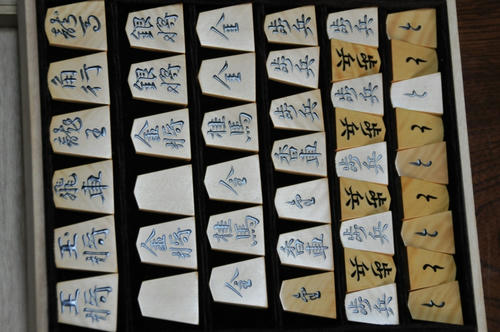 龍馬
角行
龍王
飛車
玉将
玉将
銀将
銀将
金将
金将
全
全
桂馬
桂馬
歩兵
歩兵
歩兵
香車
香車
歩兵
歩兵
歩兵
歩兵
歩兵
歩兵
歩兵
歩兵
歩兵
と
と
と
と
と
と
と
と
と